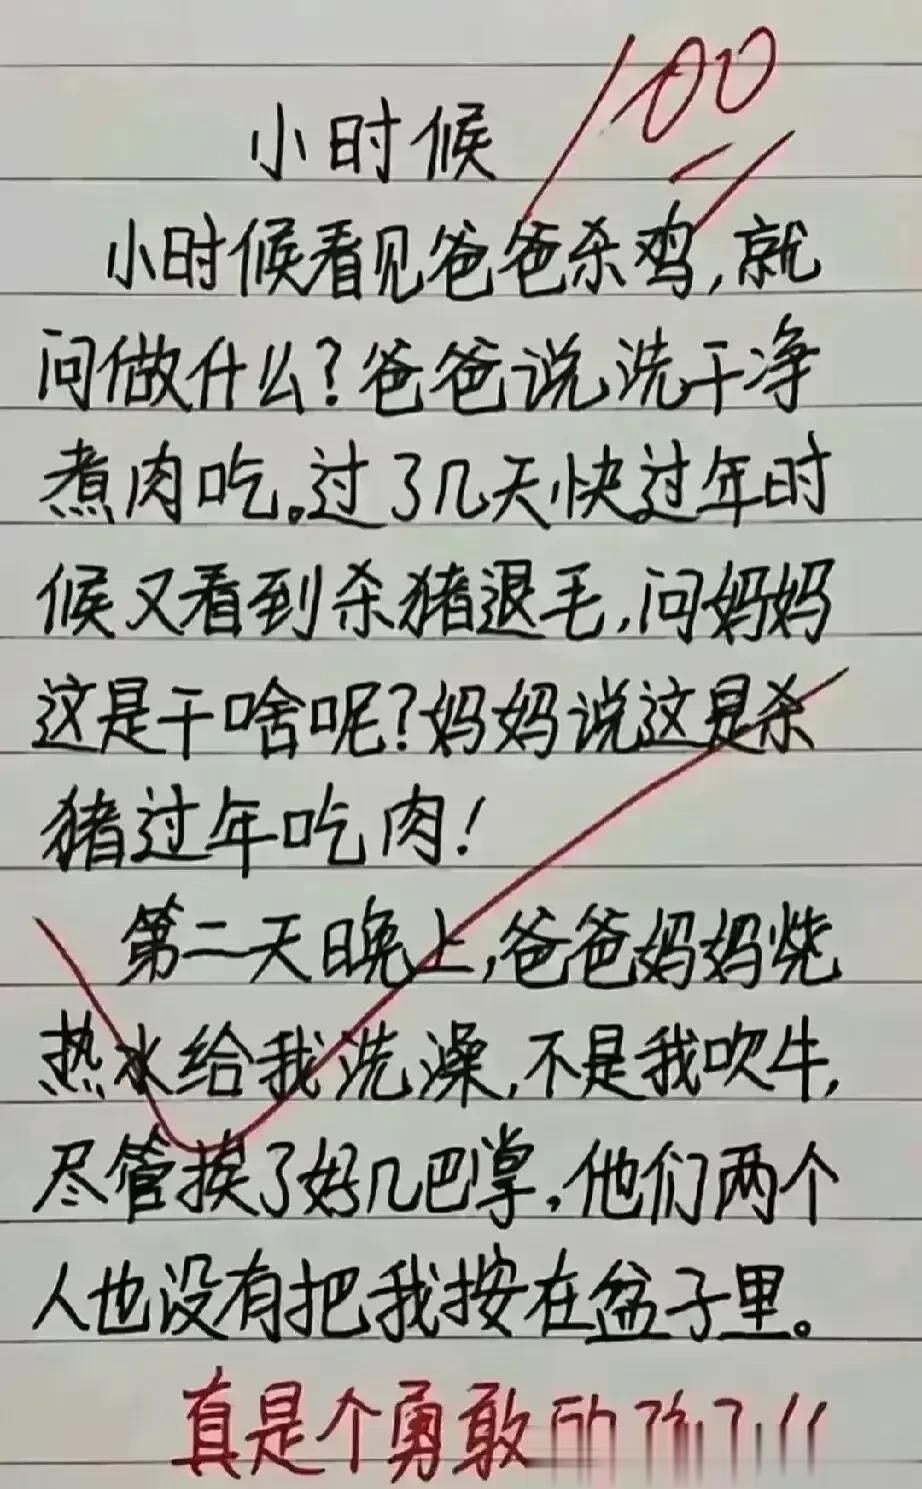 100
小时候
小时候看见爸爸杀鸡,就
问做什么?爸爸说洗干净
煮肉吃。过了几天快过年时
候又看到杀猪退毛,问妈妈
这是干啥呢?妈妈说这是杀
猪过年吃肉!
第二天晚上,爸爸妈妈烧
热水给我洗澡,不是我吹牛,
尽管挨了好几巴掌,他们两个
人也没有把我按在盆子里。
真是个勇敢的